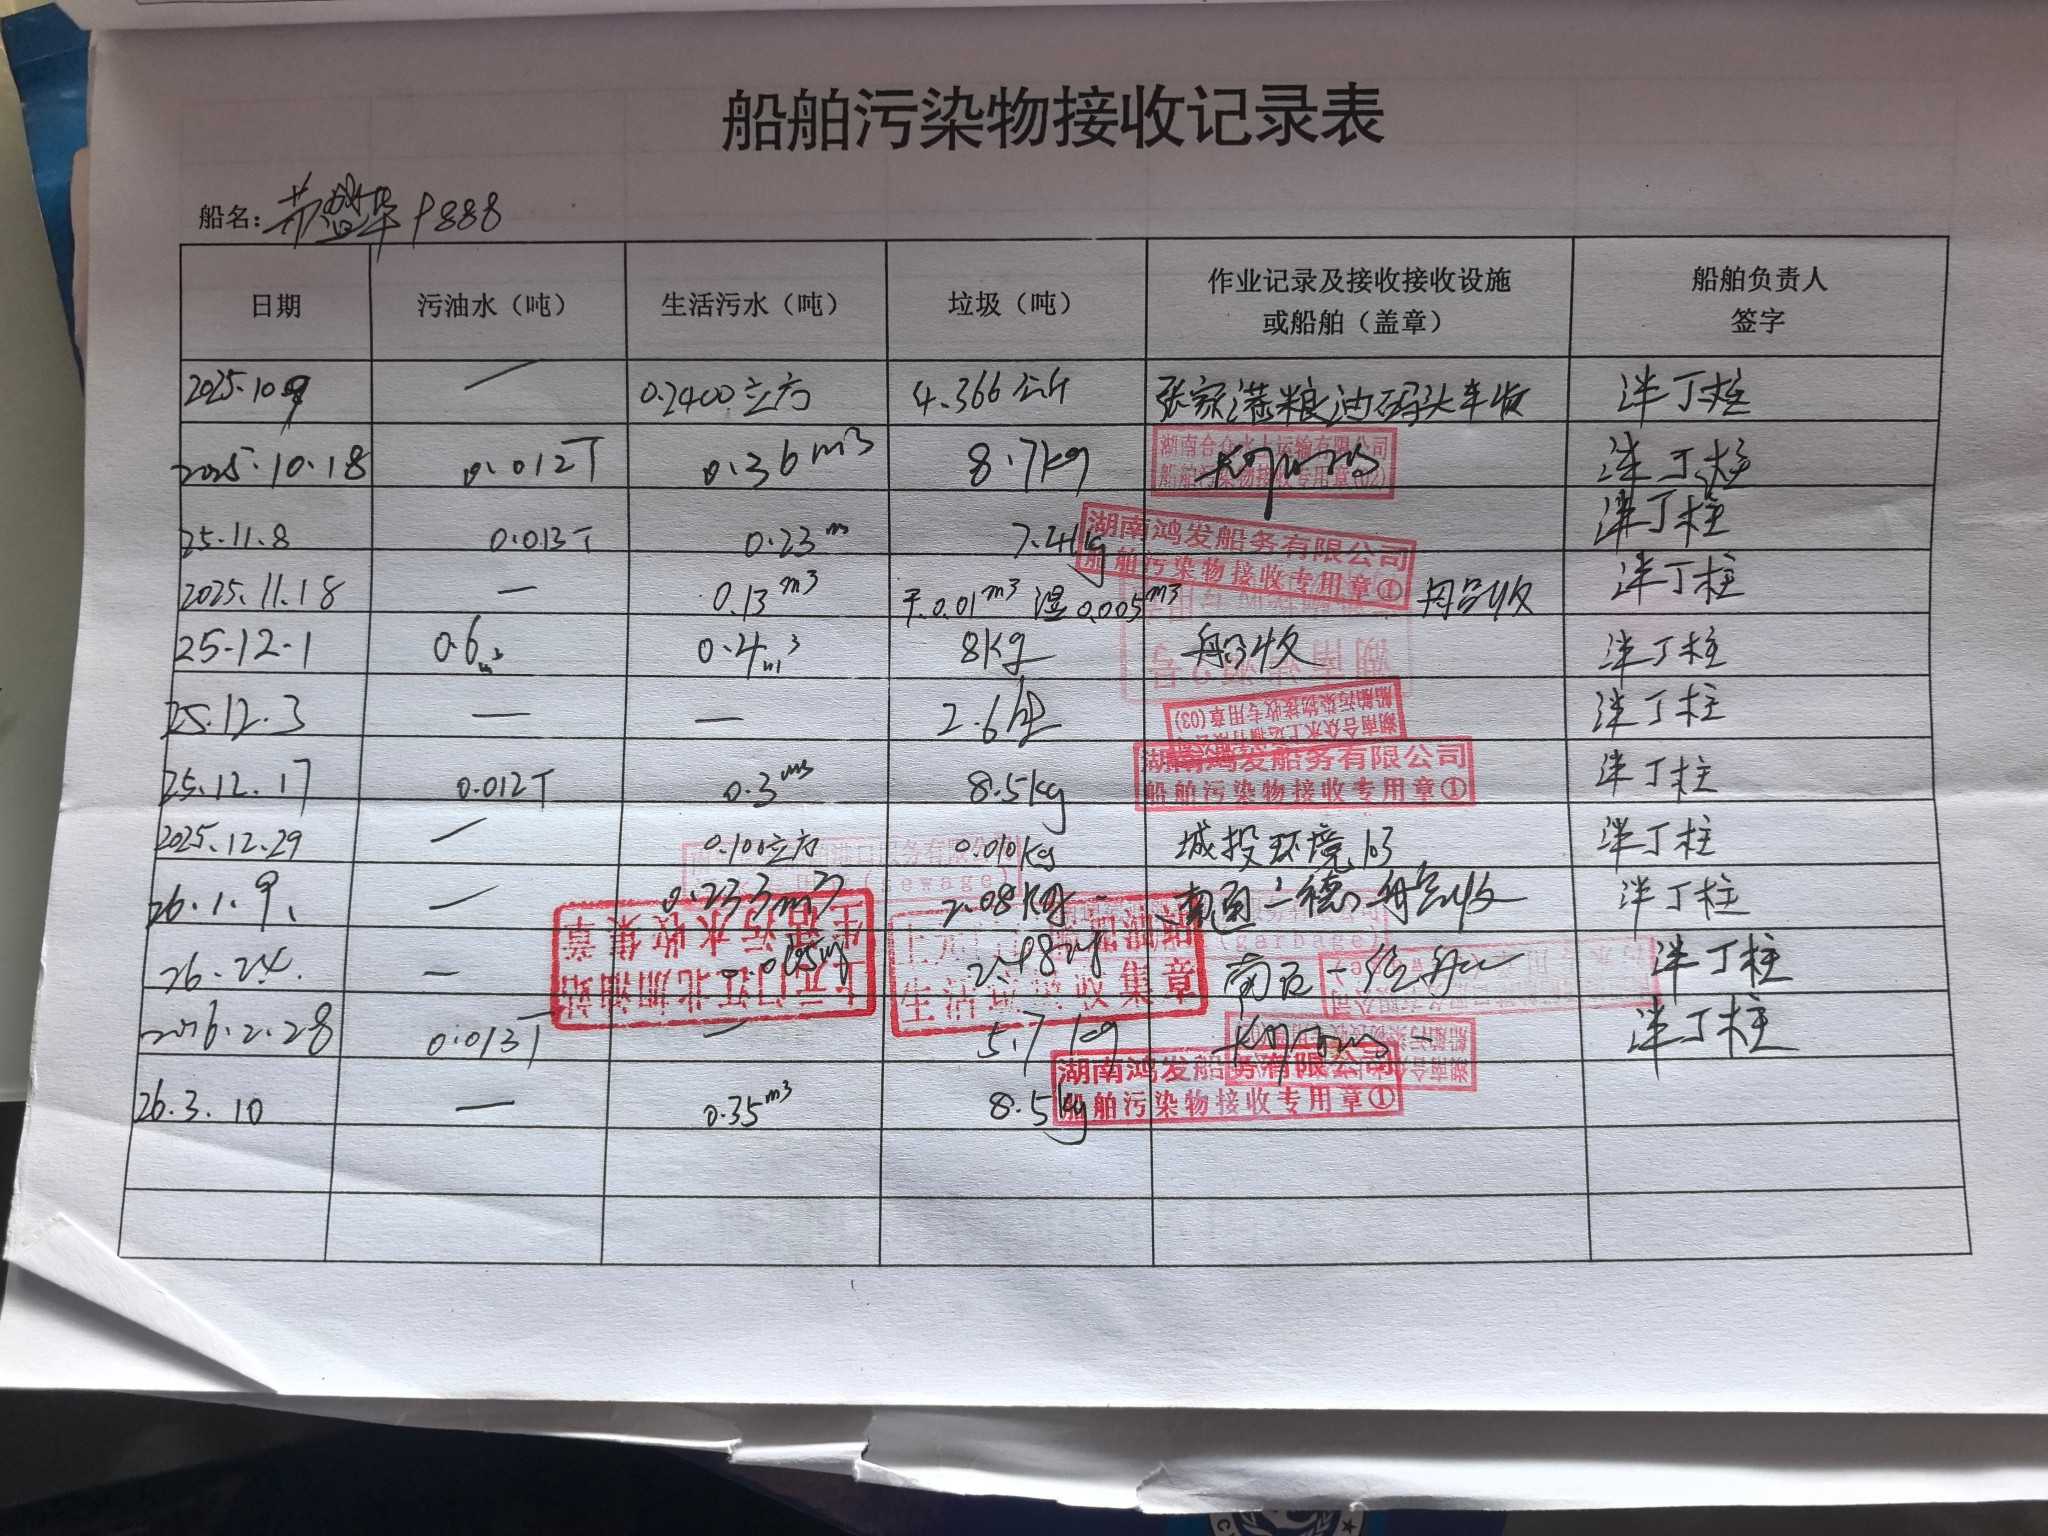 船舶污染物接收记录表
船名: 888
日期 污油水（吨） 生活污水（吨） 垃圾（吨） 作业记录及接收接收设施或船舶（盖章） 船舶负责人签字
2025.10.9 — 0.2400立方 4.366公斤 张家港粮油码头车收 丁柱
2025.10.18 0.012T 0.36m3 8.7kg 湖南合众水上运输有限公司 船舶污染物接收专用章(02) 丁柱
25.11.8 0.013T 0.23m 7.41kg 湖南鸿发船务有限公司 船舶污染物接收专用章① 丁柱
2025.11.18 — 0.13m3 干0.01m3 湿0.005m3 船收 丁柱
25.12.1 0.6m3 0.4m3 8kg 船收 丁柱
25.12.3 — — 2.6 湖南合众水上运输有限公司 船舶污染物接收专用章(03) 丁柱
25.12.17 0.012T 0.3m3 8.5kg 湖南鸿发船务有限公司 船舶污染物接收专用章① 丁柱
2025.12.29 — 0.100立方 0.010kg 城投环境103 丁柱
26.1.9. — 0.233m3 2.08kg 南通 德 船收 丁柱
26.2.4. — 丁柱
2026.2.28 0.013T — 5.7kg 丁柱
26.3.10 — 0.35m3 8.5kg 湖南鸿发船务有限公司 船舶污染物接收专用章①
上元门江北加油站
生活污水收集章
生活 收集章
(sewage)
(garbage)